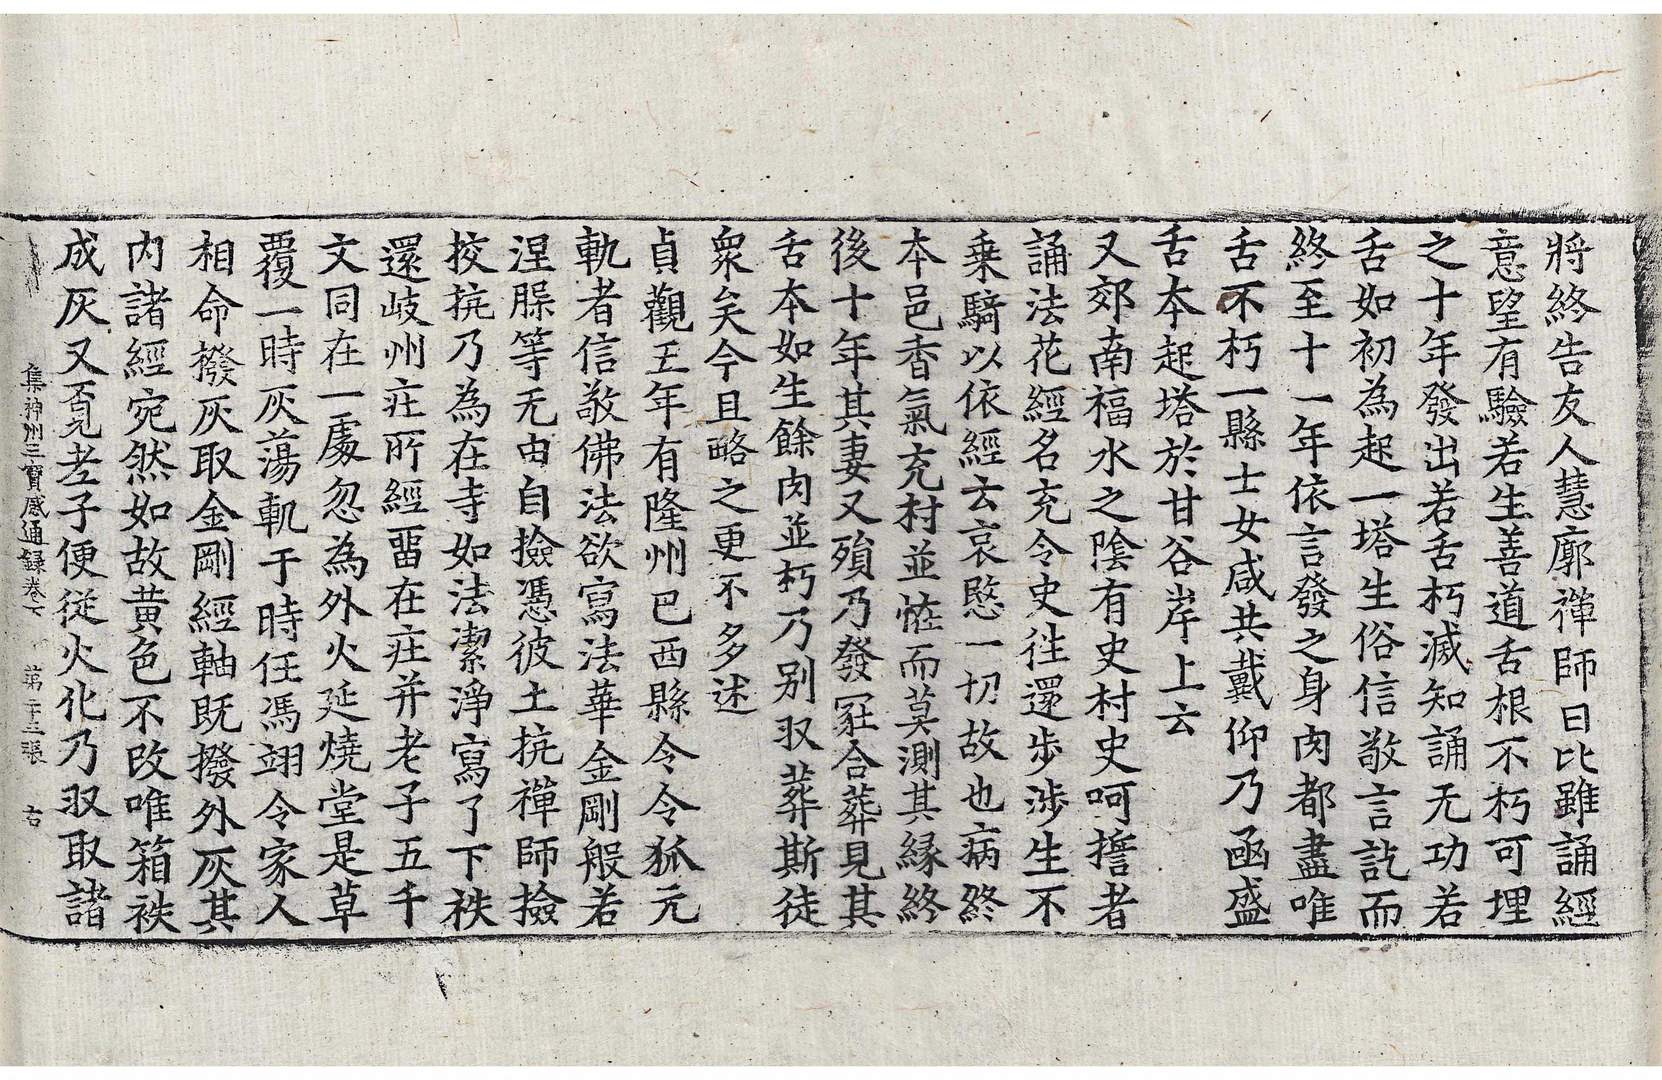 將終告友人慧廓禪師曰比雖誦經
意望有驗若生善道舌根不朽可埋
之十年發出若舌朽滅知誦无功若
舌如初為起一塔生俗信敬言訖而
終至十一年依言發之身肉都盡唯
舌不朽一縣士女咸共戴仰乃函盛
舌本起塔於甘谷岸上云
又郊南福水之隂有史村史呵擔者
誦法花經名充令史徃還步涉生不
乗騎以依經云哀愍一切故也病終
本邑香氣充村並恠而莫測其縁終
後十年其妻又殞乃發冢合葬見其
舌本如生餘肉並朽乃别収葬斯徒
衆矣今且略之更不多述
貞觀五年有隆州巴西縣令令狐元
軌者信敬佛法欲寫法華金剛般若
涅槃等无由自撿憑彼土抗禪師撿
挍抗乃為在寺如法潔淨寫了下袟
還岐州庄所經畱在庄并老子五千
文同在一處忽為外火延燒堂是草
覆一時灰蕩軌于時任馮翊令家人
相命撥灰取金剛經軸既撥外灰其
内諸經宛然如故黄色不改唯箱袟
成灰又覔老子便從火化乃収取諸
集神州三寶感通録卷下 第二十三張 右